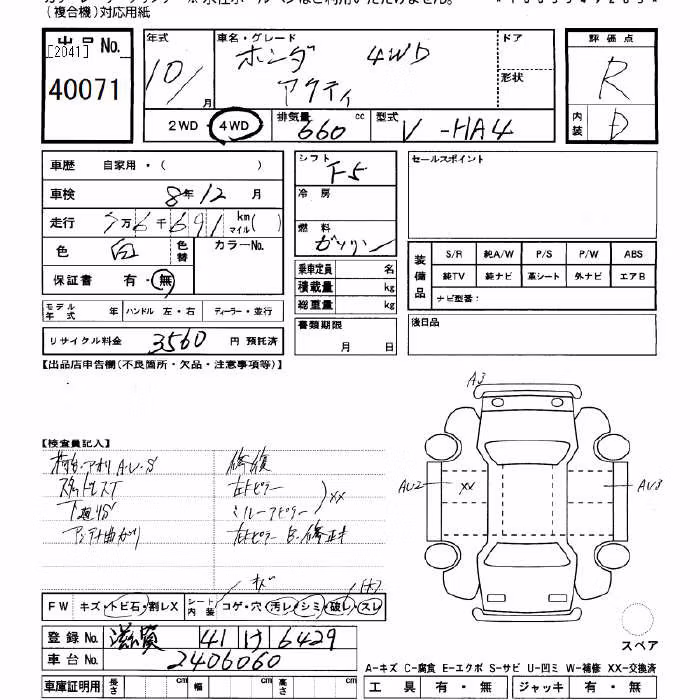 (複合機)対応用紙
出品No.
[2041]
40071
年式 車名・グレード ドア 評価点
10/ 月 ホンダ 4WD R
アクティ 形状
2WD・4WD 排気量 660 cc 型式 V-HA4 内装 D
車歴 自家用・( )
車検 8年12月
走行 7万6千691 km マイル( )
色 白 色替 カラーNo.
保証書 有・無
モデル年式 年 ハンドル 左・右 ディーラー・並行
リサイクル料金 3560 円 預託済
シフト F5
冷房
燃料 ガソリン
乗車定員 名
積載量 kg
総重量 kg
書類期限
月 日
セールスポイント
装備品 S/R 純A/W P/S P/W ABS
純TV 純ナビ 革シート 外ナビ エアB
ナビ型番:
後日品
【出品店申告欄(不良箇所・欠品・注意事項等)】
【検査員記入】
A.U.S 修復
スタッドレスT 右Fピラー
下廻りS ミドルーフピラー XX
アンテナ曲がり 右Fピラー B・修正キ
A3
AU2 XX AU3
FW キズ・トビ石・割レX シート内装 コゲ・穴・汚レ・シミ・破レ・スレ
(大)
登録No. 滋賀 41 け 6429
車台No. 2406060
スペア
A-キズ C-腐食 E-エクボ S-サビ U-凹ミ W-補修 XX-交換済
車庫証明用 長さ cm 幅 cm 高さ cm
工具 有・無 ジャッキ 有・無